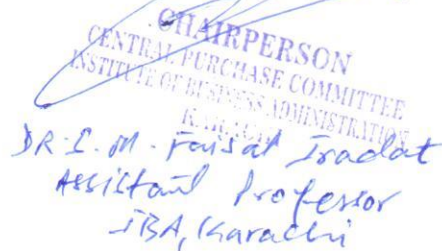 CHAIRPERSON
CENTRAL PURCHASE COMMITTEE
INSTITUTE OF BUSINESS ADMINISTRATION
KARACHI
DR. I. M. Faisal Iradat
Assistant Professor
IBA, Karachi